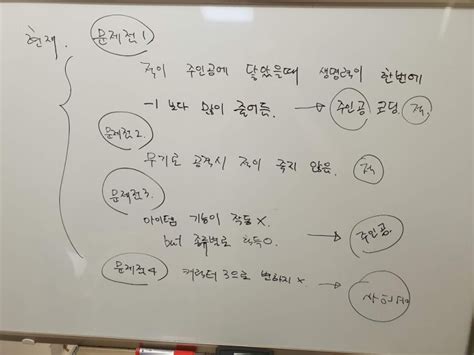 현재. 문제점 1
적이 주인공에 닿았을때 생명력이 한번에
-1 보다 많이 줄어듬. → 주인공 코딩, 적.
문제점 2.
무기로 공격시 적이 죽지 않음. 적
문제점 3.
아이템 기능이 작동 X.
but 종류별로 획득 O. → 주인공.
문제점 4 캐릭터 3으로 변하지 X →